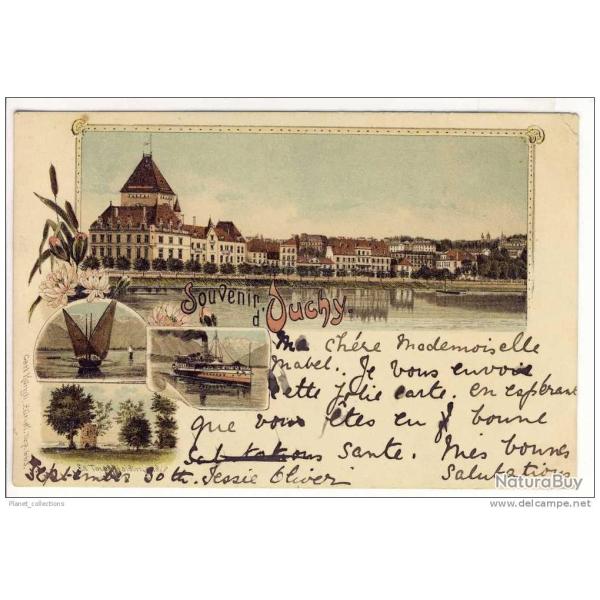 Souvenir
d'Ouchy.
Ma chère Mademoiselle
Mabel. Je vous envoie
cette jolie carte. en espérant
que vous êtes en bonne
Salutations Sante. Mes bonnes
Salutations
September 30th. Jessie Oliver
NaturaBuy
Planet_collections
www.delcampe.net